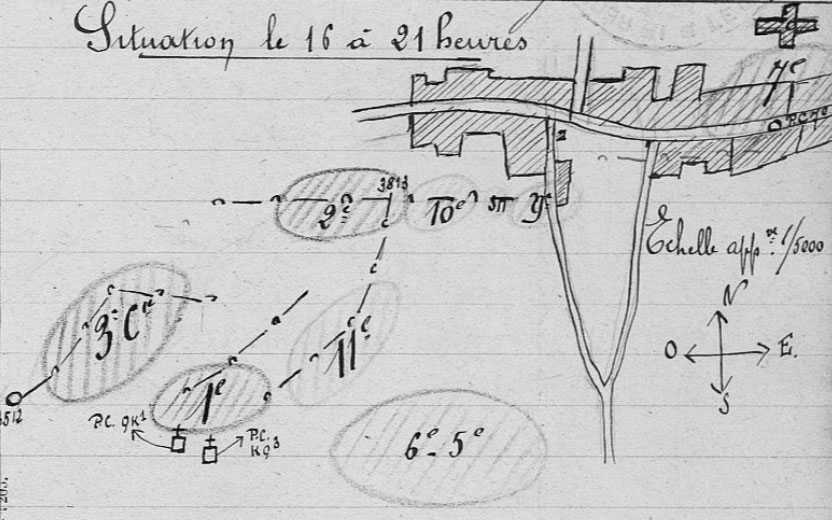 Situation le 16 à 21 heures
7e
P.C. 7e
2
3813
2e
10e
9e
Echelle app.ve 1/5000
N
O
E.
S
3e Cie
11e
1e
3512
P.C. 9K1
P.C.
K93
6e - 5e